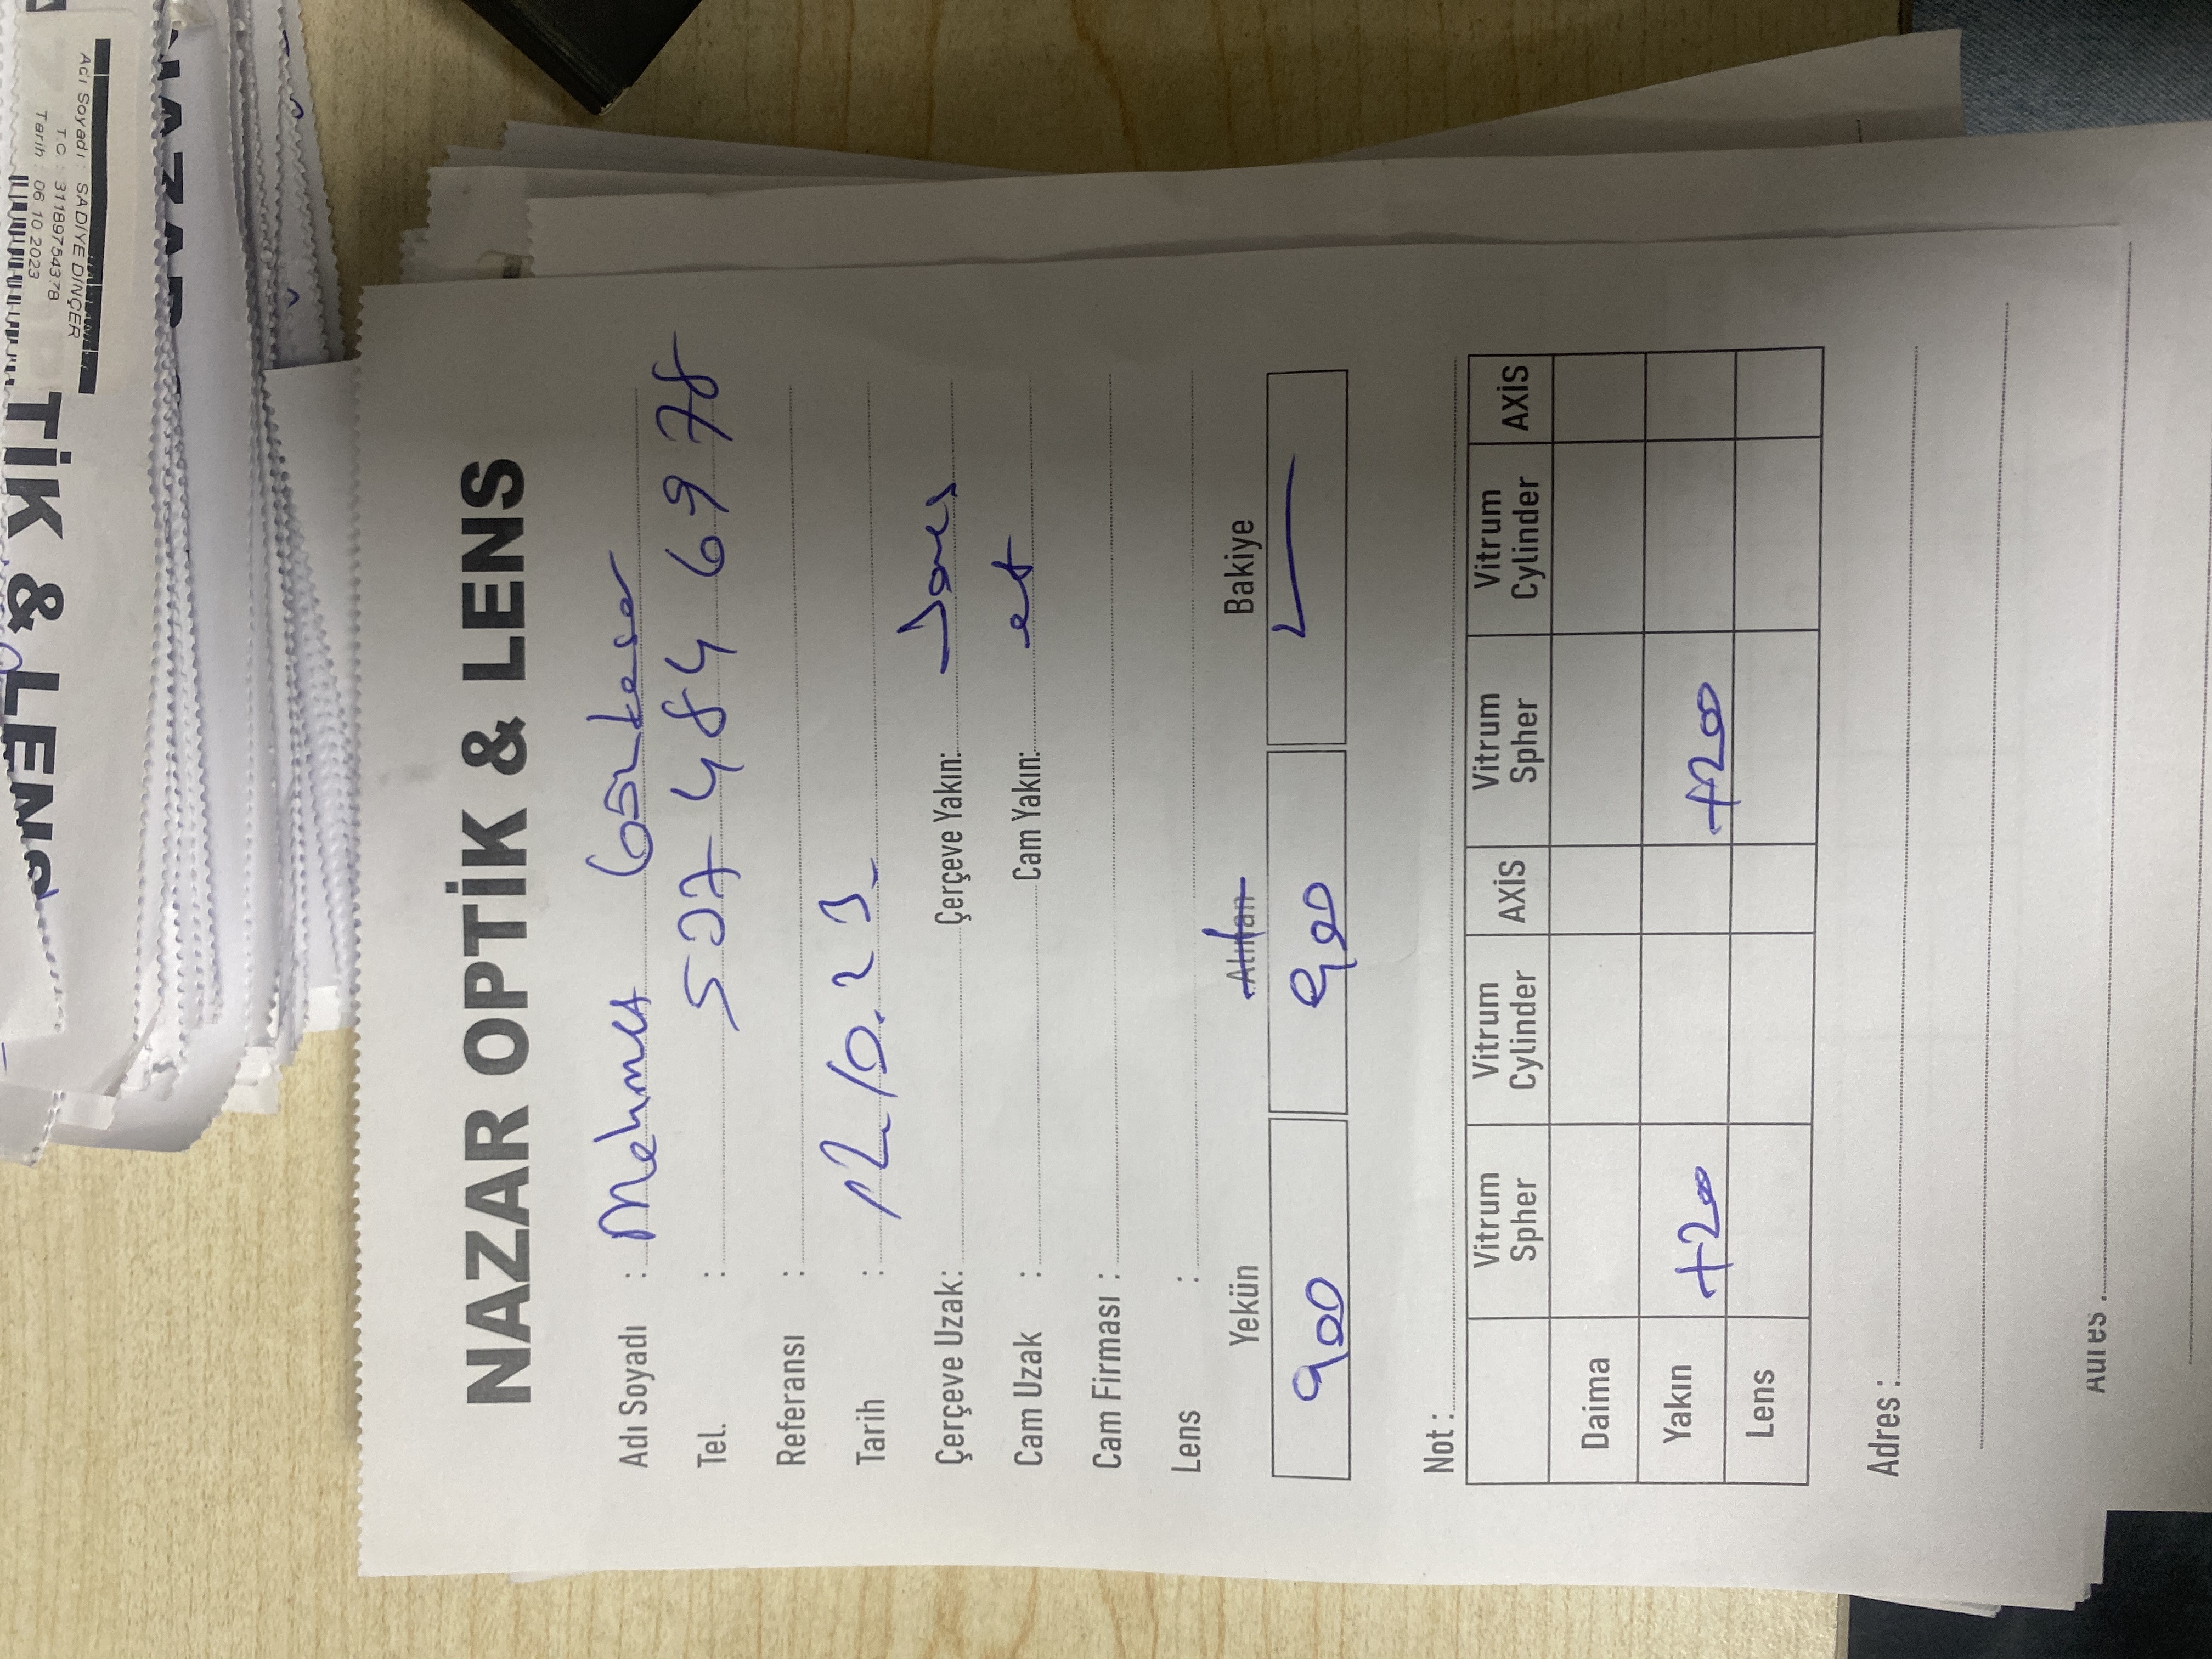 TİK & LENS
Adı Soyadı : SADİYE DİNÇER
TC : 31189754378
Tarih : 06.10.2023
NAZAR
NAZAR OPTİK & LENS
Adı Soyadı : Mehmet
Tel. : 537 484 6978
Referansı :
Tarih : 12.10.23
Çerçeve Uzak: Çerçeve Yakın:
Cam Uzak : Cam Yakın: et
Cam Firması :
Lens :
Yekün Alınan Bakiye
900 900
Not :
Vitrum Spher Vitrum Cylinder AXİS Vitrum Spher Vitrum Cylinder AXİS
Daima
Yakın +200 +200
Lens
Adres :
Adres :